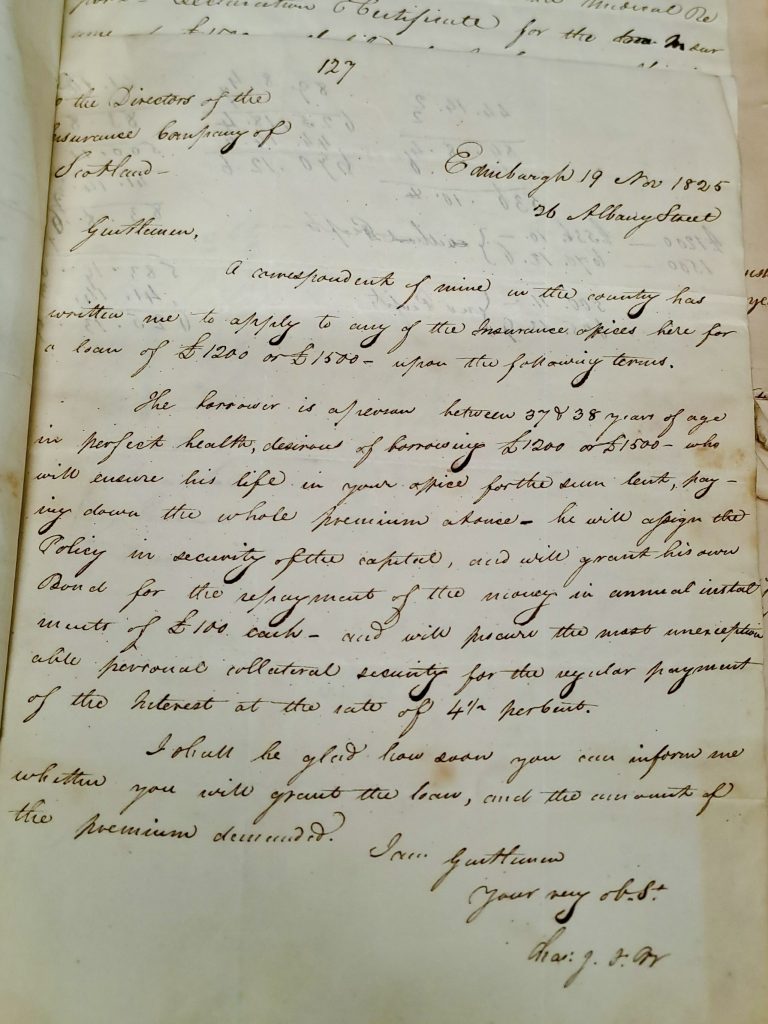 Declaration & Certificate for the
127
the Directors of the
Insurance Company of
Scotland -
Edinburgh 19 Nov 1825
26 Albany Street
Gentlemen,
A correspondent of mine in the county has
written me to apply to any of the Insurance offices here for
a loan of £1200 or £1500 - upon the following terms.
The borrower is a person between 37 & 38 years of age
in perfect health, desirous of borrowing £1200 or £1500 - who
will ensure his life in your office for the sum lent, pay-
ing down the whole premium at once - he will assign the
Policy in security of the capital, and will grant his own
Bond for the repayment of the money in annual instal
ments of £100 each - and will procure the most unexception
able personal collateral security for the regular payment
of the Interest at the rate of 4½ per Cent.
I shall be glad how soon you can inform me
whether you will grant the loan, and the amount of
the premium demanded.
I am Gentlemen
Your very ob. St
Chas: